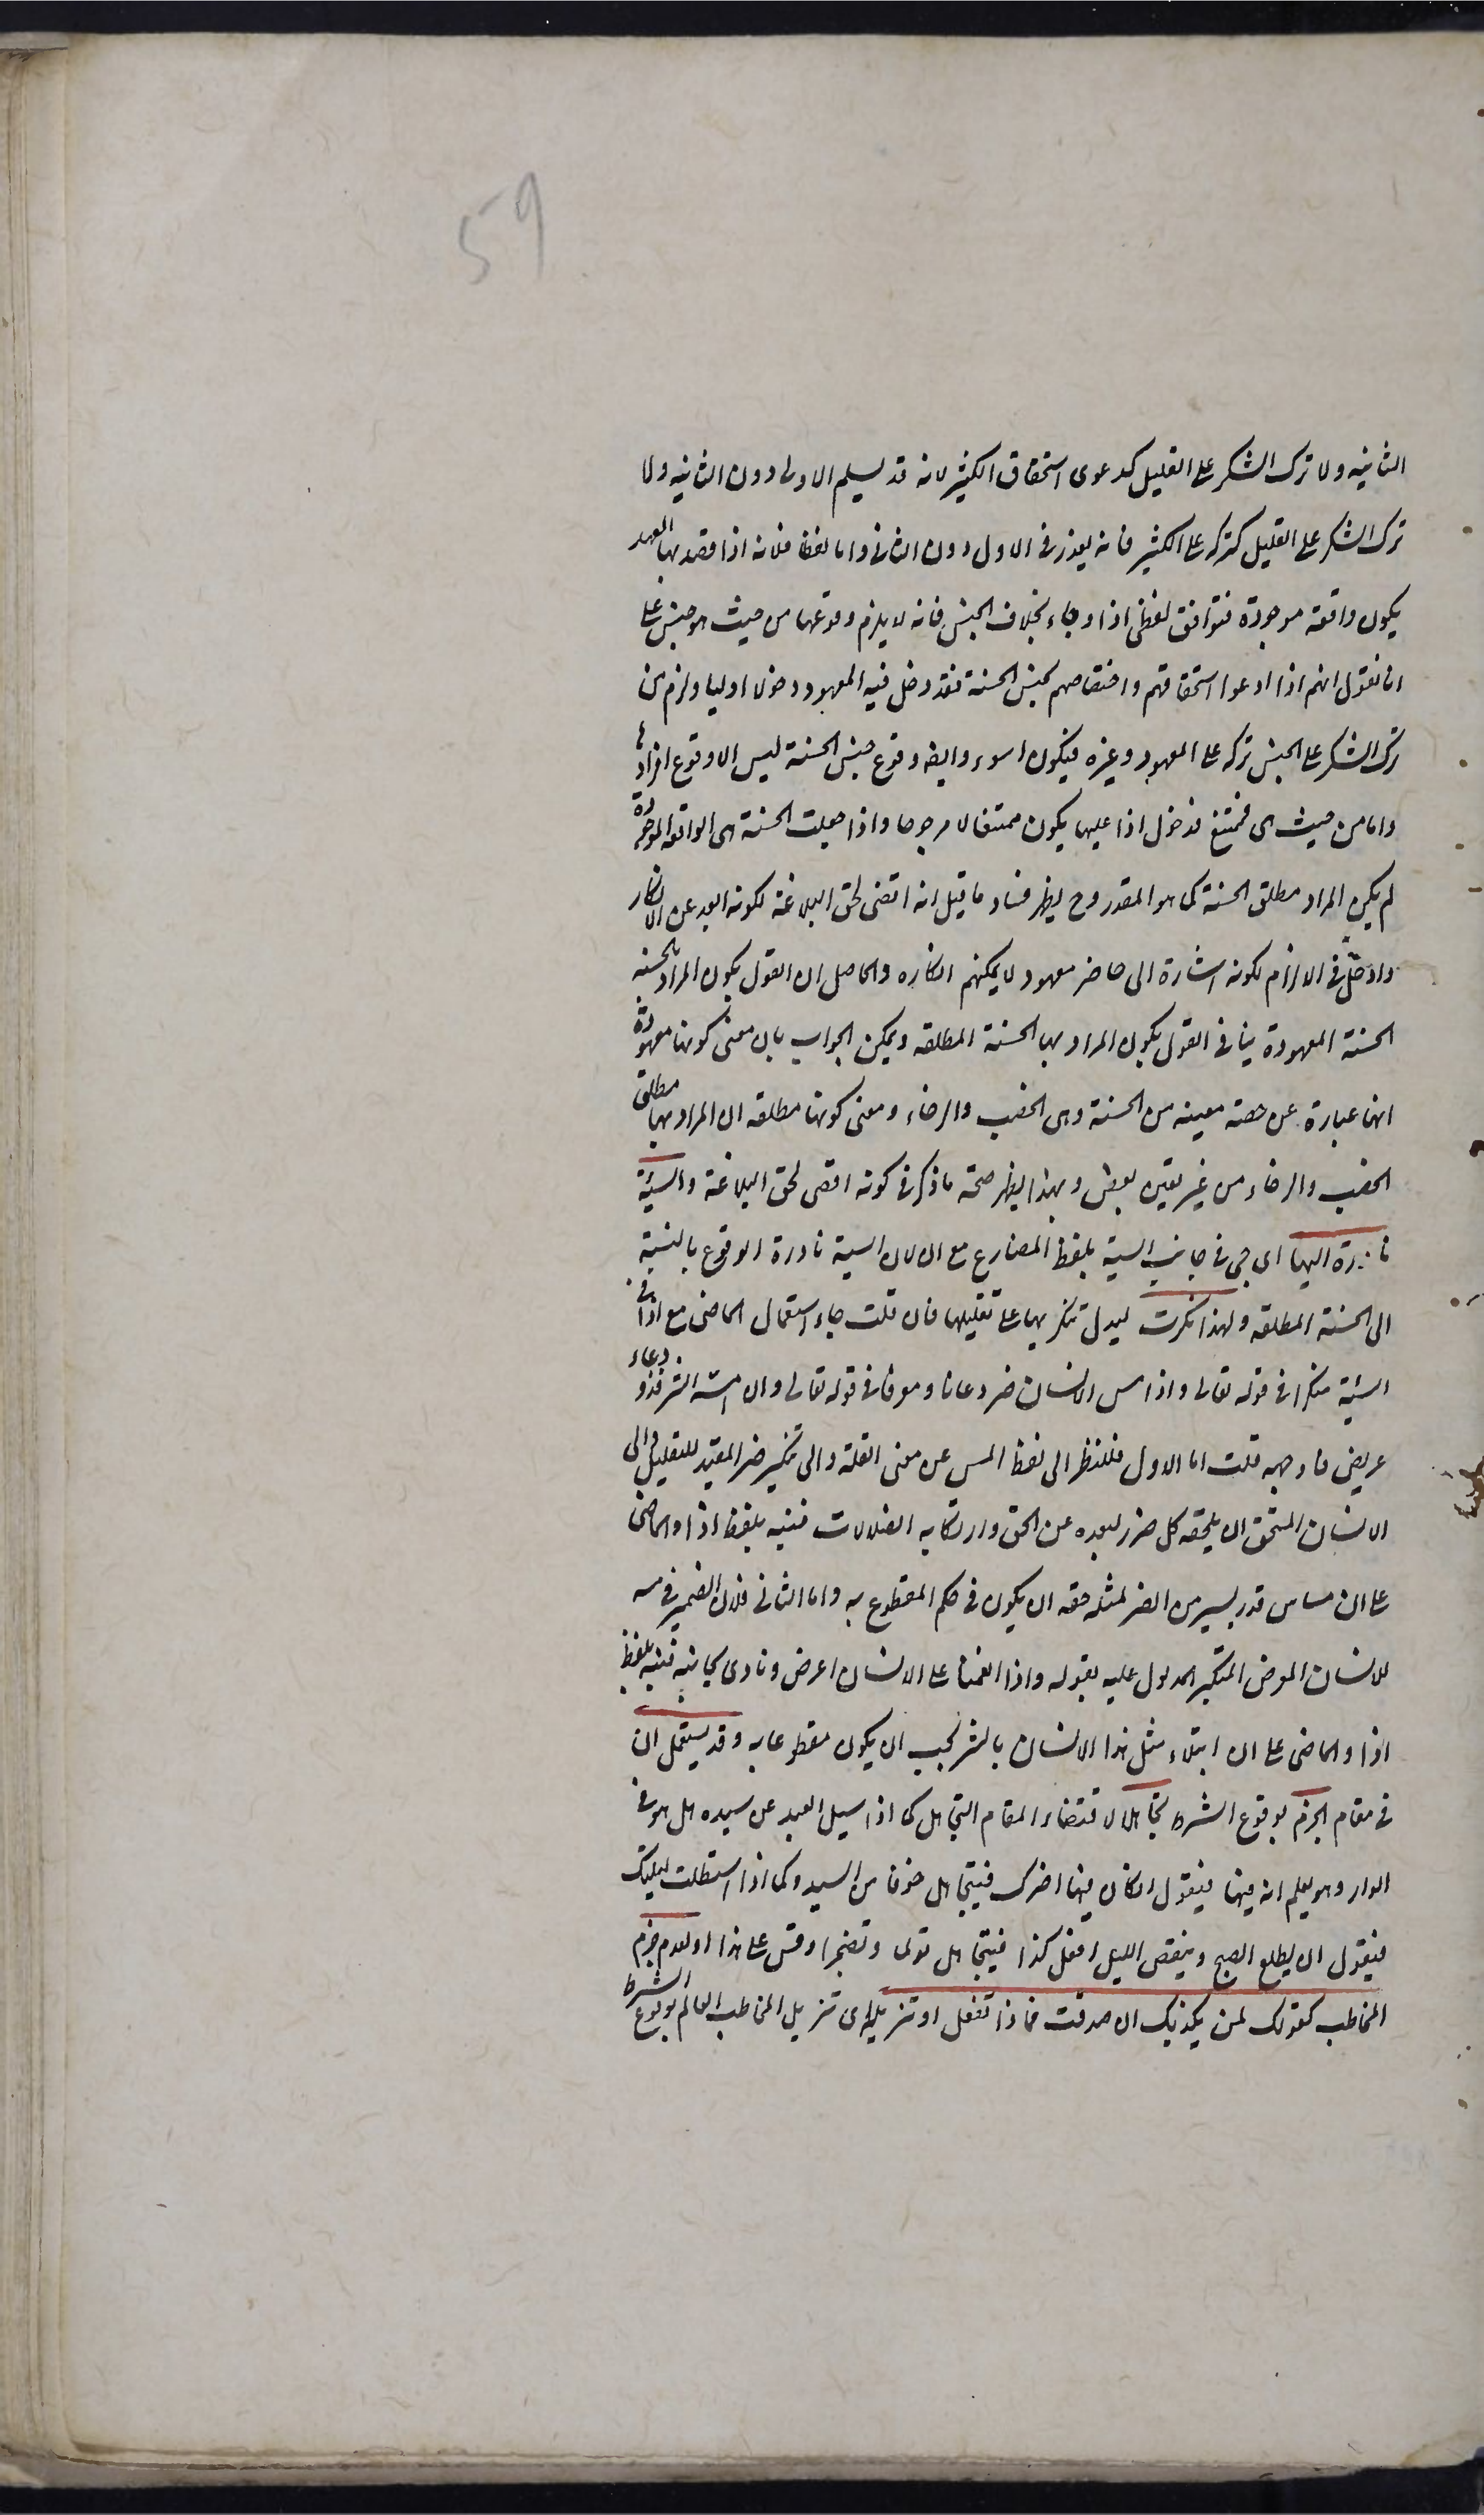 59
الثانية ولا ترك الشكر على القليل كدعوى استحقاق الكثير لانه قد يسلم الاولى دون الثانية ولا
ترك الشكر على القليل كتركه على الكثير فانه يعذر فى الاول دون الثانى واما لفظا فلانه اذا قصد بها العهد
يكون واقعة موجودة فتوافق لفظى اذا وجاء بخلاف الجنس فانه لا يلزم وقوعها من حيث هو جنس على
انا نقول انهم اذا ادعوا استحقاقهم واختصاصهم بجنس الحسنة فقد دخل فيه المعهود دخولا اوليا ولزم من
ترك الشكر على الجنس تركه على المعهود وغيره فيكون اسوء وايضا وقوع جنس الحسنة ليس الا وقوع افرادها
واما من حيث هى فممتنع فدخول اذا عليها يكون ممتنعا لا مرجوحا واذا جعلت الحسنة هى الواقعة الموجودة
لم يكن المراد مطلق الحسنة كما هو المقدر وح يظهر فساد ما قيل انه اقضى لحق البلاغة لكونه ابعد عن الانكار
وادخل فى الالزام لكونه اشارة الى حاضر معهود لا يمكنهم انكاره والحاصل ان القول بكون المراد بالحسنة
الحسنة المعهودة ينافى القول بكون المراد بها الحسنة المطلقة ويمكن الجواب بان معنى كونها معهودة
انها عبارة عن حصة معينة من الحسنة وهى الخصب والرخاء ومعنى كونها مطلقة ان المراد بها مطلق
الخصب والرخاء من غير تعيين بعض وبهذا يظهر صحة ما ذكر فى كونه اقضى لحق البلاغة والسيئة
نادرة اليها اى جئ فى جانب السيئة بلفظ المضارع مع ان لان السيئة نادرة الوقوع بالنسبة
الى الحسنة المطلقة ولهذا نكرت ليدل تنكيرها على تقليلها فان قلت جاء استعمال الماضى مع اذا فى
السيئة منكرا فى قوله تعالى واذا مس الانسان ضر دعانا ومعرفا فى قوله تعالى وان مسه الشر فذو دعاء
عريض فما وجهه قلت اما الاول فللنظر الى لفظ المس عن معنى القلة والى تنكير ضر المفيد للتقليل والى
الانسان المستحق ان يلحقه كل ضرر لبعده عن الحق وارتكابه الضلالات فنبه بلفظ اذا والماضى
على ان مساس قدر يسير من الضر لمثله حقه ان يكون فى حكم المقطوع به واما الثانى فلان الضمير فى مسه
للانسان المعرض المتكبر المدلول عليه بقوله واذا انعمنا على الانسان اعرض ونأى بجانبه فنبه بلفظ
اذا والماضى على ان ابتلاء مثل هذا الانسان بالشر يجب ان يكون مقطوعا به وقد يستعمل ان
فى مقام الجزم بوقوع الشرط تجاهلا لاقتضاء المقام التجاهل كما اذا سئل العبد عن سيده هل هو فى
الدار وهو يعلم انه فيها فيقول ان كان فيها اخبرك فيتجاهل خوفا من السيد وكما اذا استطلت ليلتك
فيقول ان يطلع الصبح وينقضى الليل افعل كذا فيتجاهل تولها وتضجرا وقس على هذا او لعدم جزم
المخاطب كقولك لمن يكذبك ان صدقت فماذا تفعل او تنزيله اى تنزيل المخاطب العالم بوقوع الشرط